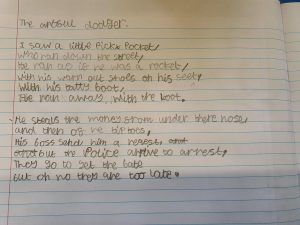 The artful dodger.
I saw a little Pick Pocket,
Who ran down the street,
He ran as if he was a rocket,
With his worn out shoes on his feet,
With his tatty boot,
He ran away with the loot.
He steals the money from under there nose,
and then of he
His boss sends him a
But the Police arrive to arrest,
They go to set the bate
But oh no they are too late.